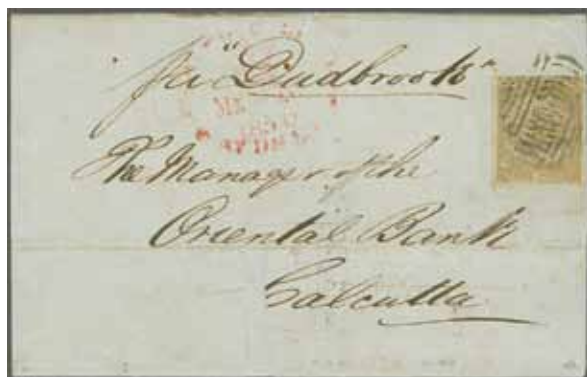 per "Dudbrook"
The Manager of the
Oriental Bank
Calcutta